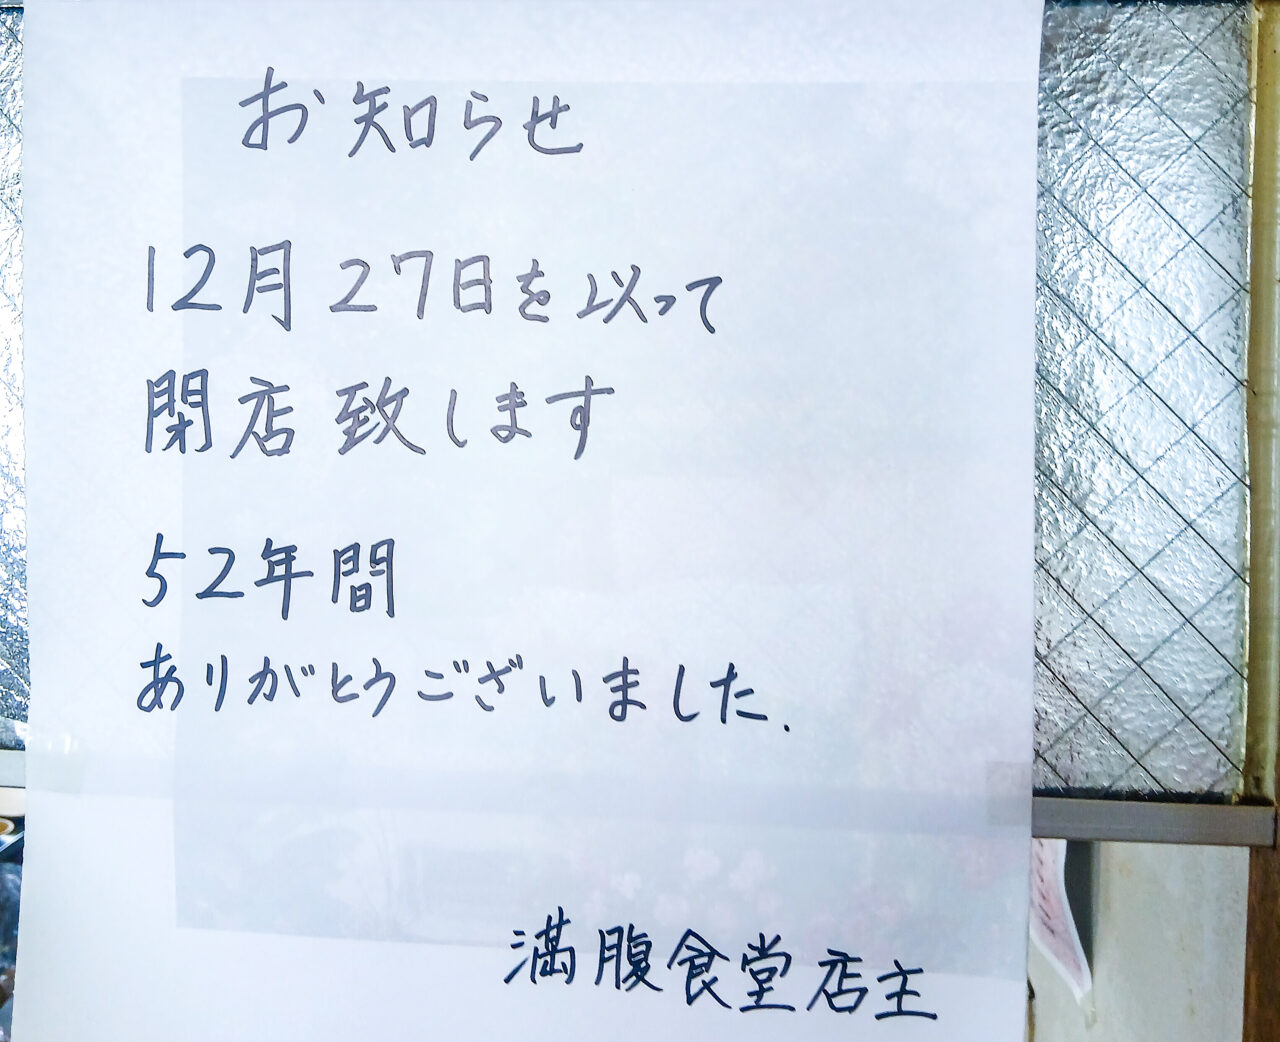 お知らせ
12月27日を以って
閉店致します
52年間
ありがとうございました.
満腹食堂店主